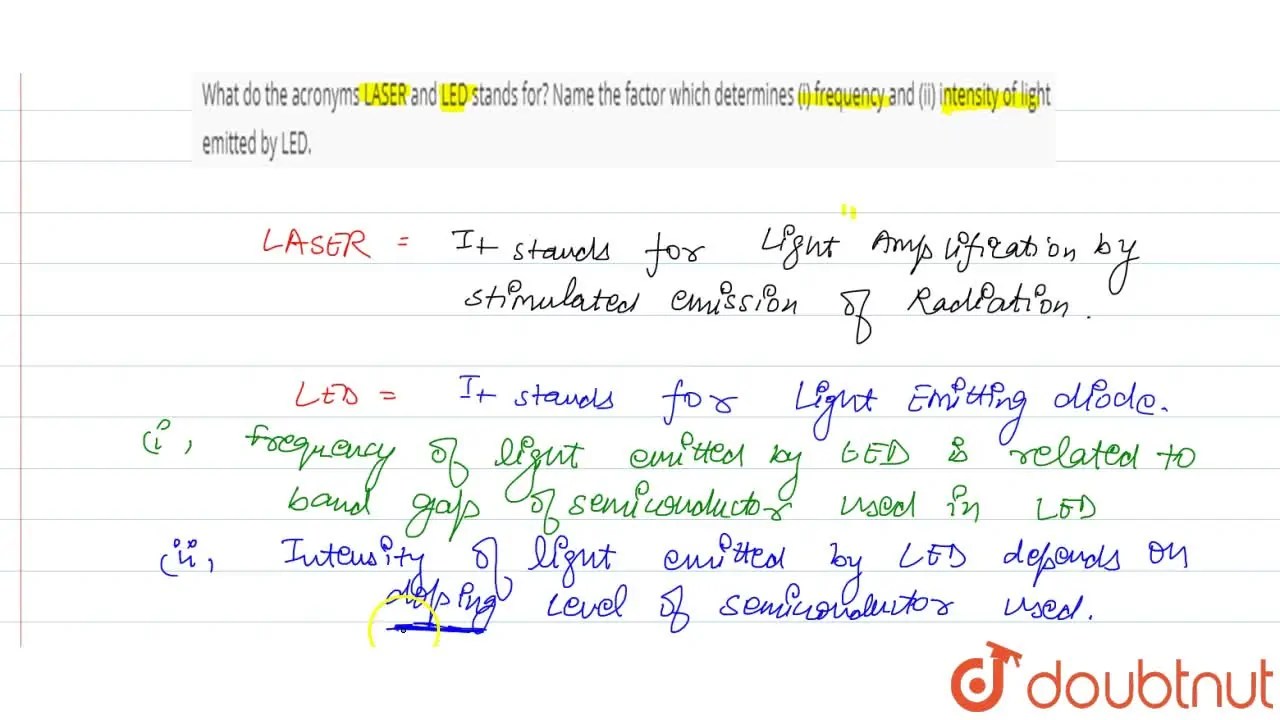 What do the acronyms LASER and LED stands for? Name the factor which determines (i) frequency and (ii) intensity of light
emitted by LED.
LASER = It stands for Light Amplification by
stimulated emission of Radiation.
LED = It stands for Light Emitting diode.
(i, frequency of light emitted by LED is related to
band gap of semiconductor used in LED
(ii, Intensity of light emitted by LED depends on
dopping Level of semiconductor used.
doubtnut